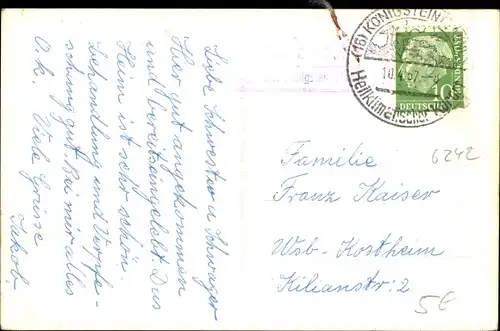 Liebe Schwester u. Schwager
Hier gut angekommen
und bereits eingelebt. Das
Heim ist sehr schön.
Behandlung und Verpfle-
gung gut. Bei mir alles
O.k. Viele Grüsse
Jakob.
(16) KÖNIGSTEIN
10.4.57.-4
Heilklimatischer
10
DEUTSCHE BUNDESPOST
Familie
Franz Kaiser
Wsb-Kostheim
Kilianstr: 2
6242
5€